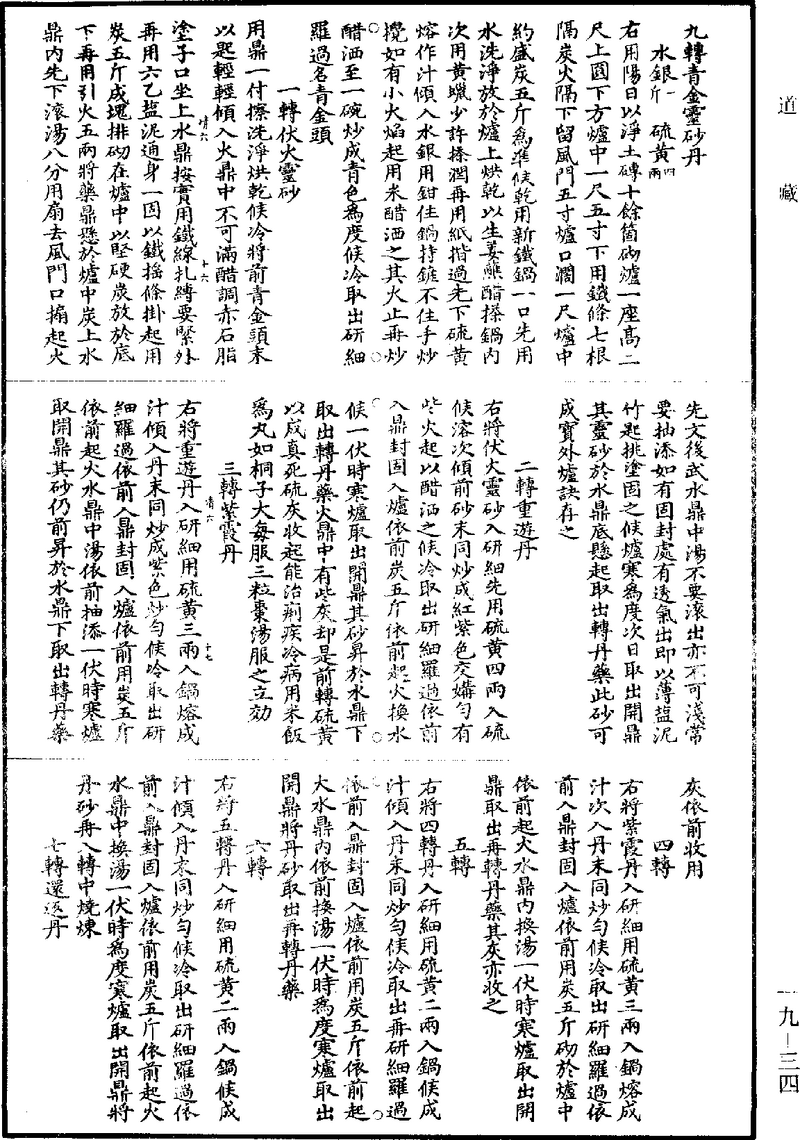 道藏
九—三四
九轉青金靈砂丹
水銀一斤　硫黃四兩
右用陽日以淨土磚十餘箇砌爐一座高二
尺上圓下方爐中一尺五寸下用鐵條七根
隔炭火隔下留風門五寸爐口濶一尺爐中
約盛炭五斤為準候乾用新鐵鍋一口先用
水洗淨放於爐上烘乾以生姜蘸醋搽鍋內
次用黃蠟少許搽潤再用紙揩過先下硫黃
熔作汁傾入水銀用鉗住鍋持鎚不住手炒
攪如有小火焰起用米醋洒之其火止再炒
醋洒至一碗炒成青色為度候冷取出研細
羅過名青金頭
一轉伏火靈砂
用鼎一付擦洗淨烘乾候冷將前青金頭末
以匙輕輕傾入火鼎中不可滿醋調赤石脂
塗子口坐上水鼎按實用鐵線扎縛要緊外
再用六乙盐泥通身一固以鐵搖條掛起用
炭五斤成塊排砌在爐中以堅硬炭放於底
下再用引火五兩將藥鼎懸於爐中炭上水
鼎內先下滾湯八分用扇去風門口搧起火
先文後武水鼎中湯不要滾出亦不可淺常
要抽添如有固封處有透氣出即以薄盐泥
竹匙挑塗固之候爐寒為度次日取出開鼎
其靈砂於水鼎底懸起取出轉丹藥此砂可
成寳外爐訣存之
二轉重遊丹
右將伏火靈砂入研細先用硫黃四兩入硫
候溶次傾前砂末同炒成紅紫色交媾勻有
些火起以醋洒之候冷取出研細羅過依前
入鼎封固入爐依前炭五斤依前起火換水
候一伏時寒爐取出開鼎其砂昇於水鼎下
取出轉丹藥火鼎中有些灰却是前轉硫黃
以成真死硫灰收起能治痢疾冷病用米飯
為丸如桐子大每服三粒棗湯服之立効
三轉紫霞丹
右將重遊丹入研細用硫黃三兩入鍋熔成
汁傾入丹末同炒成紫色炒勻候冷取出研
細羅過依前入鼎封固入爐依前用炭五斤
依前起火水鼎中湯依前抽添一伏時寒爐
取開鼎其砂仍前昇於水鼎下取出轉丹藥
灰依前收用
四轉
右將紫霞丹入研細用硫黃三兩入鍋熔成
汁次入丹末同炒勻候冷取出研細羅過依
前入鼎封固入爐依前用炭五斤砌於爐中
依前起火水鼎內換湯一伏時寒爐取出開
鼎取出再轉丹藥其灰亦收之
五轉
右將四轉丹入研細用硫黃二兩入鍋候成
汁傾入丹末同炒勻候冷取出再研細羅過
依前入鼎封固入爐依前用炭五斤依前起
火水鼎內依前換湯一伏時為度寒爐取出
開鼎將丹砂取出再轉丹藥
六轉
右將五轉丹入研細用硫黃二兩入鍋候成
汁傾入丹末同炒勻候冷取出研細羅過依
前入鼎封固入爐依前用炭五斤依前起火
水鼎中換湯一伏時為度寒爐取出開鼎將
丹砂再入轉中燒煉
七轉還返丹